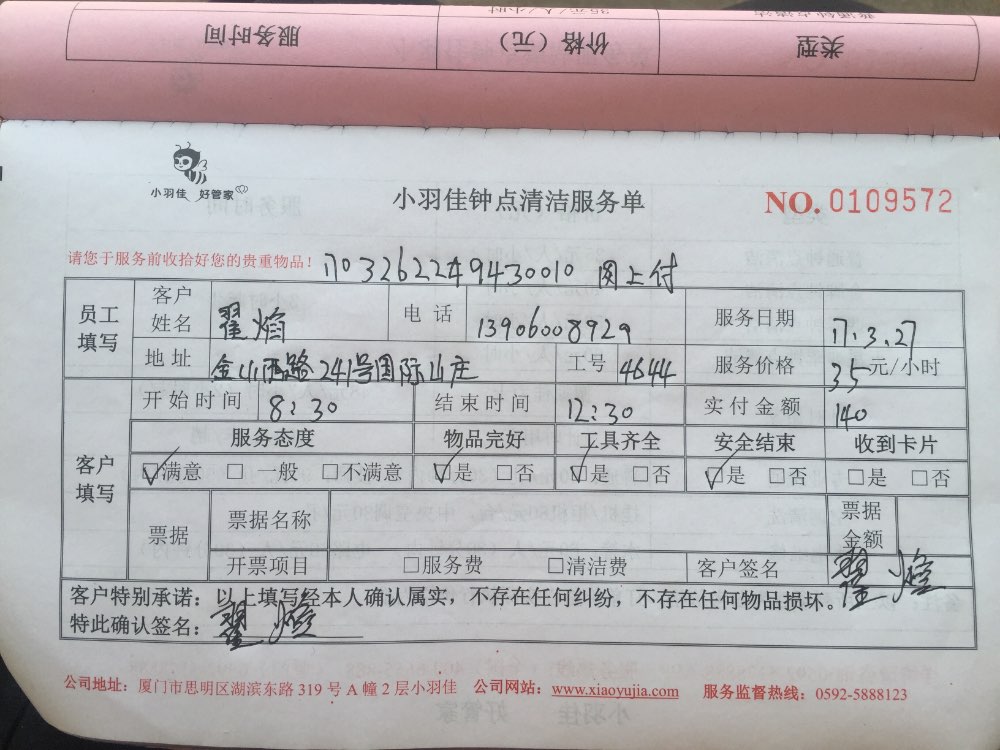 服务时间 价格（元） 类型
小羽佳 好管家
小羽佳钟点清洁服务单
NO. 0109572
请您于服务前收拾好您的贵重物品！
1703262249430010 网上付
员工填写 客户姓名 翟焰 电话 13906008929 服务日期 17.3.27
地址 金山西路241号国际山庄 工号 4644 服务价格 35元/小时
客户填写 开始时间 8:30 结束时间 12:30 实付金额 140
服务态度 物品完好 工具齐全 安全结束 收到卡片
☑满意 □一般 □不满意 ☑是 □否 ☑是 □否 ☑是 □否 □是 □否
票据 票据名称 票据金额
开票项目 □服务费 □清洁费 客户签名 翟焰
客户特别承诺：以上填写经本人确认属实，不存在任何纠纷，不存在任何物品损坏。
特此确认签名：翟焰
公司地址：厦门市思明区湖滨东路 319 号 A 幢 2 层小羽佳 公司网站：www.xiaoyujia.com 服务监督热线：0592-5888123